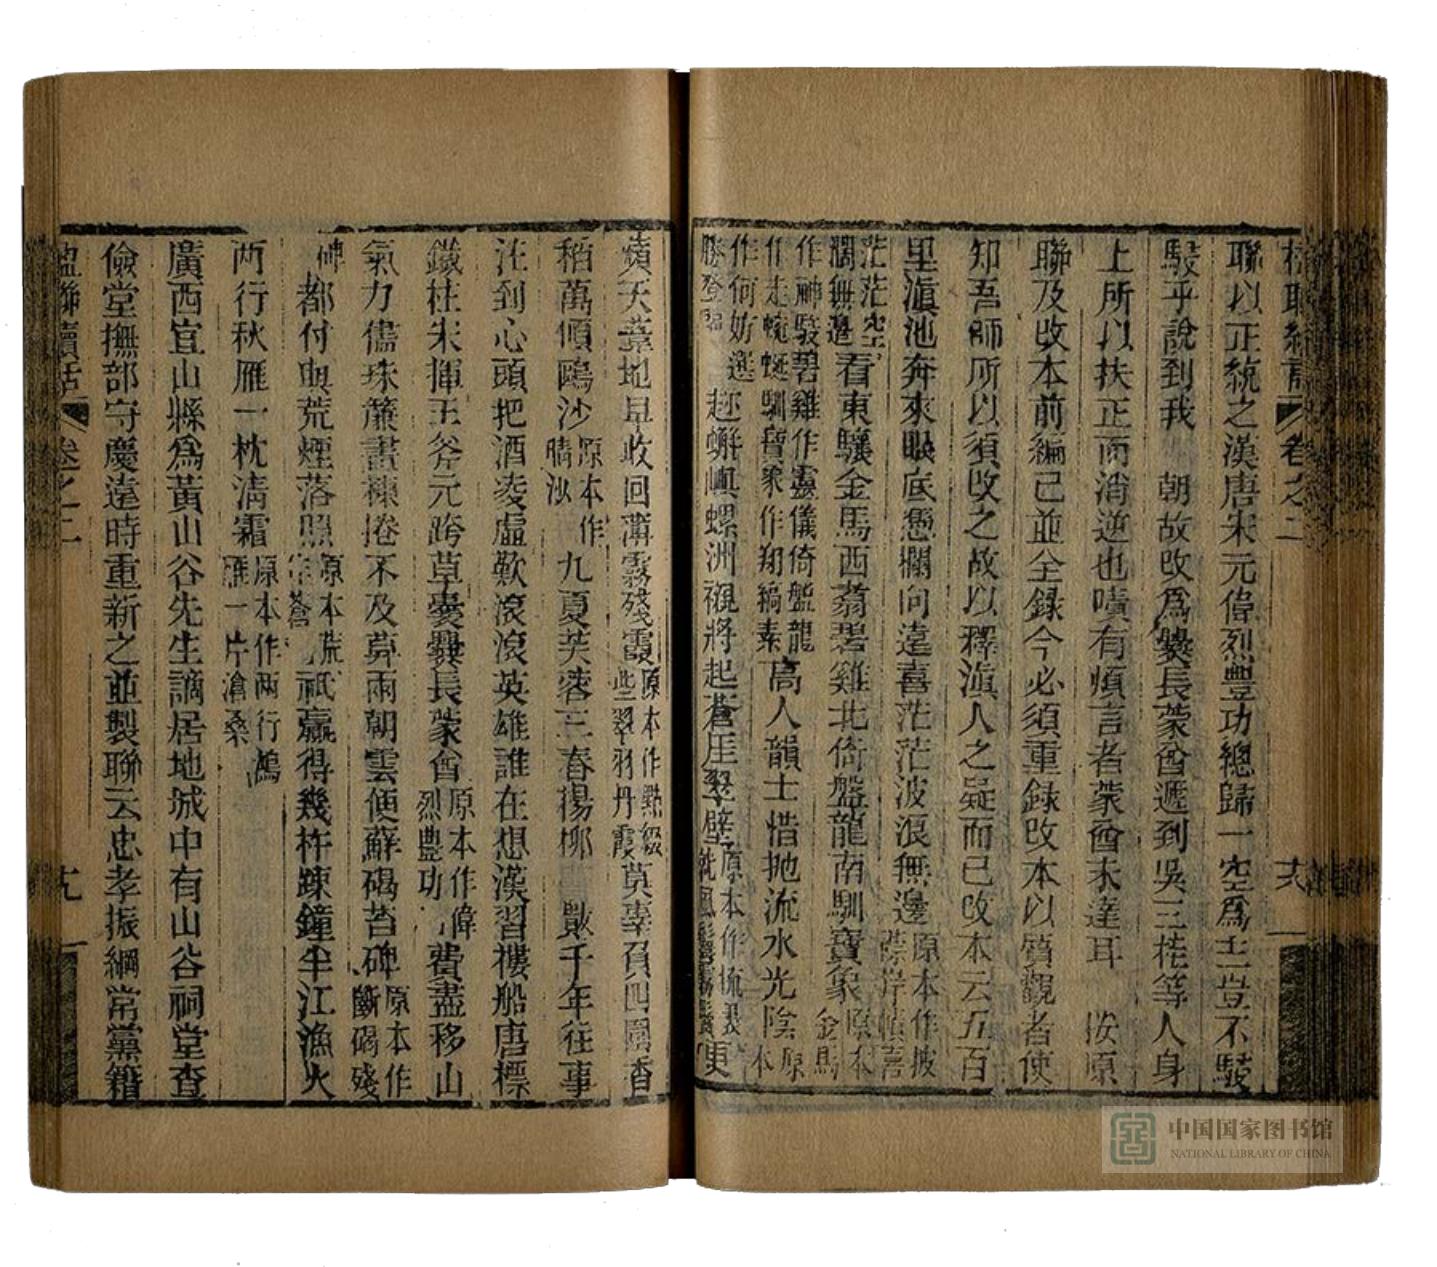 楹聯續話 卷之二
聯以正統之漢唐宋元偉烈豐功總歸一空爲主豈不駮
駮乎說到我　朝故改爲爨長蒙酋遞到吳三桂等人身
上所以扶正而消逆也嘖有煩言者蒙酋未達耳　按原
聯及改本前編已並全録今必須重録改本以質觀者使
知吾師所以須改之故以釋滇人之疑而已改本云五百
里滇池奔來眼底憑欄向遠喜茫茫波浪無邊原本作披襟岸幘喜
茫茫空闊無邊看東驤金馬西翥碧雞北倚盤龍南馴寶象原本金馬
作神駿碧雞作靈儀倚盤龍作走蜿蜒馴寶象作翔縞素高人韻士惜抛流水光陰原本
作何妨選勝登臨趂蠏嶼螺洲襯將起蒼厓翠壁原本作梳裹就風鬟霧鬢更
蘋天葦地早收回薄霧殘霞原本作點綴些翠羽丹霞莫辜負四圍香
稻萬傾鷗沙原本作晴沙九夏芙蓉三春楊柳　數千年往事
注到心頭把酒凌虛歎滾滾英雄誰在想漢習樓船唐標
鐵柱宋揮玉斧元跨革囊爨長蒙酋原本作偉烈豐功費盡移山
氣力儘珠簾畫棟捲不及暮雨朝雲便蘚碣苔碑原本作斷碣殘
碑都付與荒煙落照原本荒作蒼祇贏得幾杵踈鐘半江漁火
两行秋雁一枕清霜原本作两行鴻雁一片滄桑
廣西宜山縣爲黃山谷先生謫居地城中有山谷祠堂查
儉堂撫部守慶遠時重新之並製聯云忠孝振綱常黨籍
楹聯續話 卷之二 十九